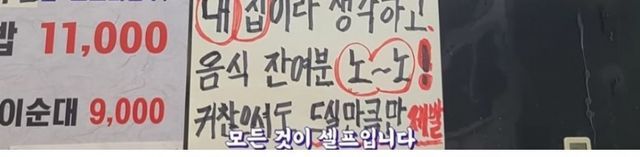 밥 11,000
이순대 9,000
내 집이라 생각하고
음식 잔여분 노~노!
귀찮아서도 드실 만큼만 제발
모든 것이 셀프입니다